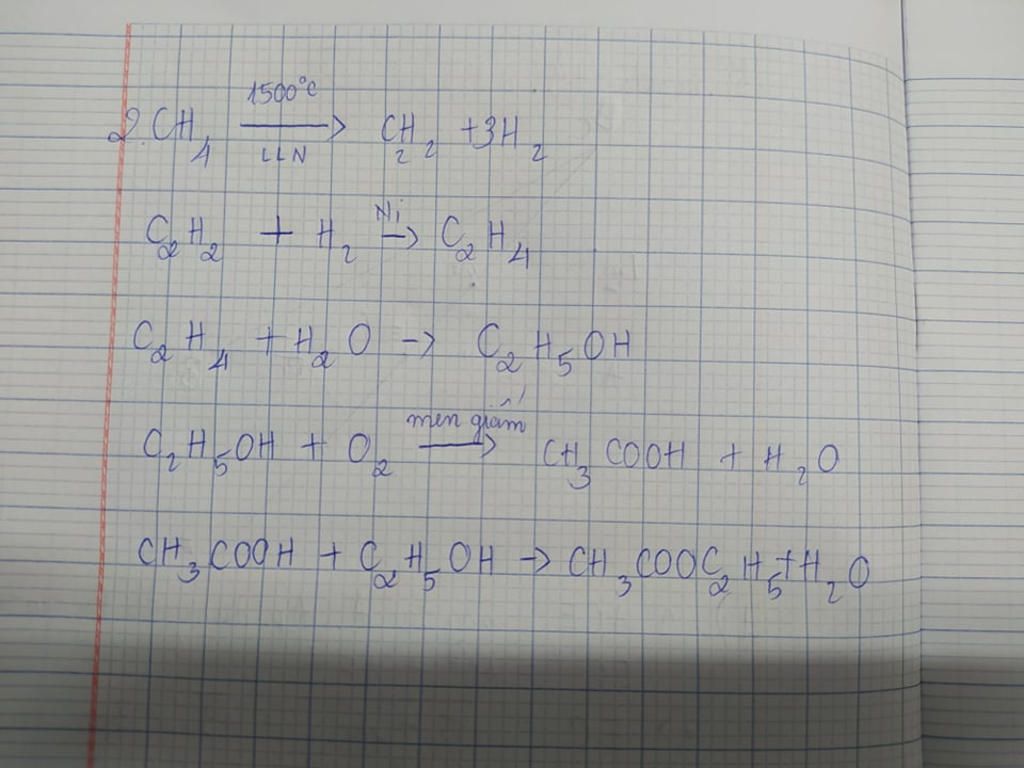 2.CH₄ 1500°C → LLN CH₂ ₂ + 3H₂
C₂H₂ + H₂ Ni → C₂H₄
C₂H₄ + H₂O → C₂H₅OH
C₂H₅OH + O₂ men giấm → CH₃COOH + H₂O
CH₃COOH + C₂H₅OH → CH₃COOC₂H₅ + H₂O